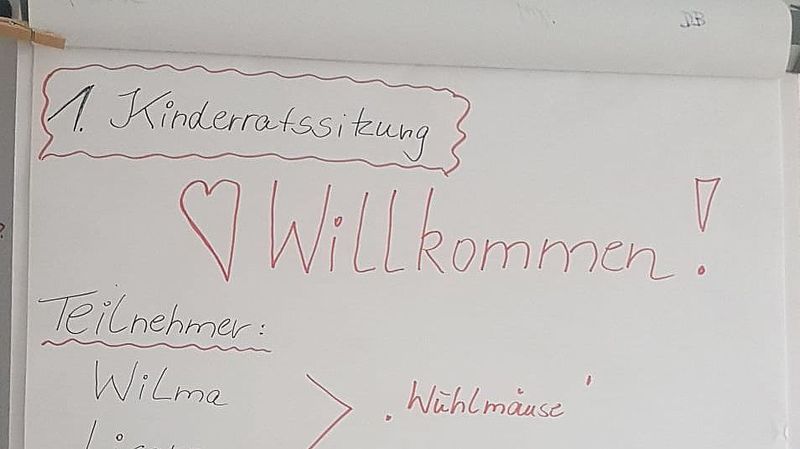 1. Kinderratssitzung
Willkommen!
Teilnehmer:
Wilma
'Wühlmäuse'